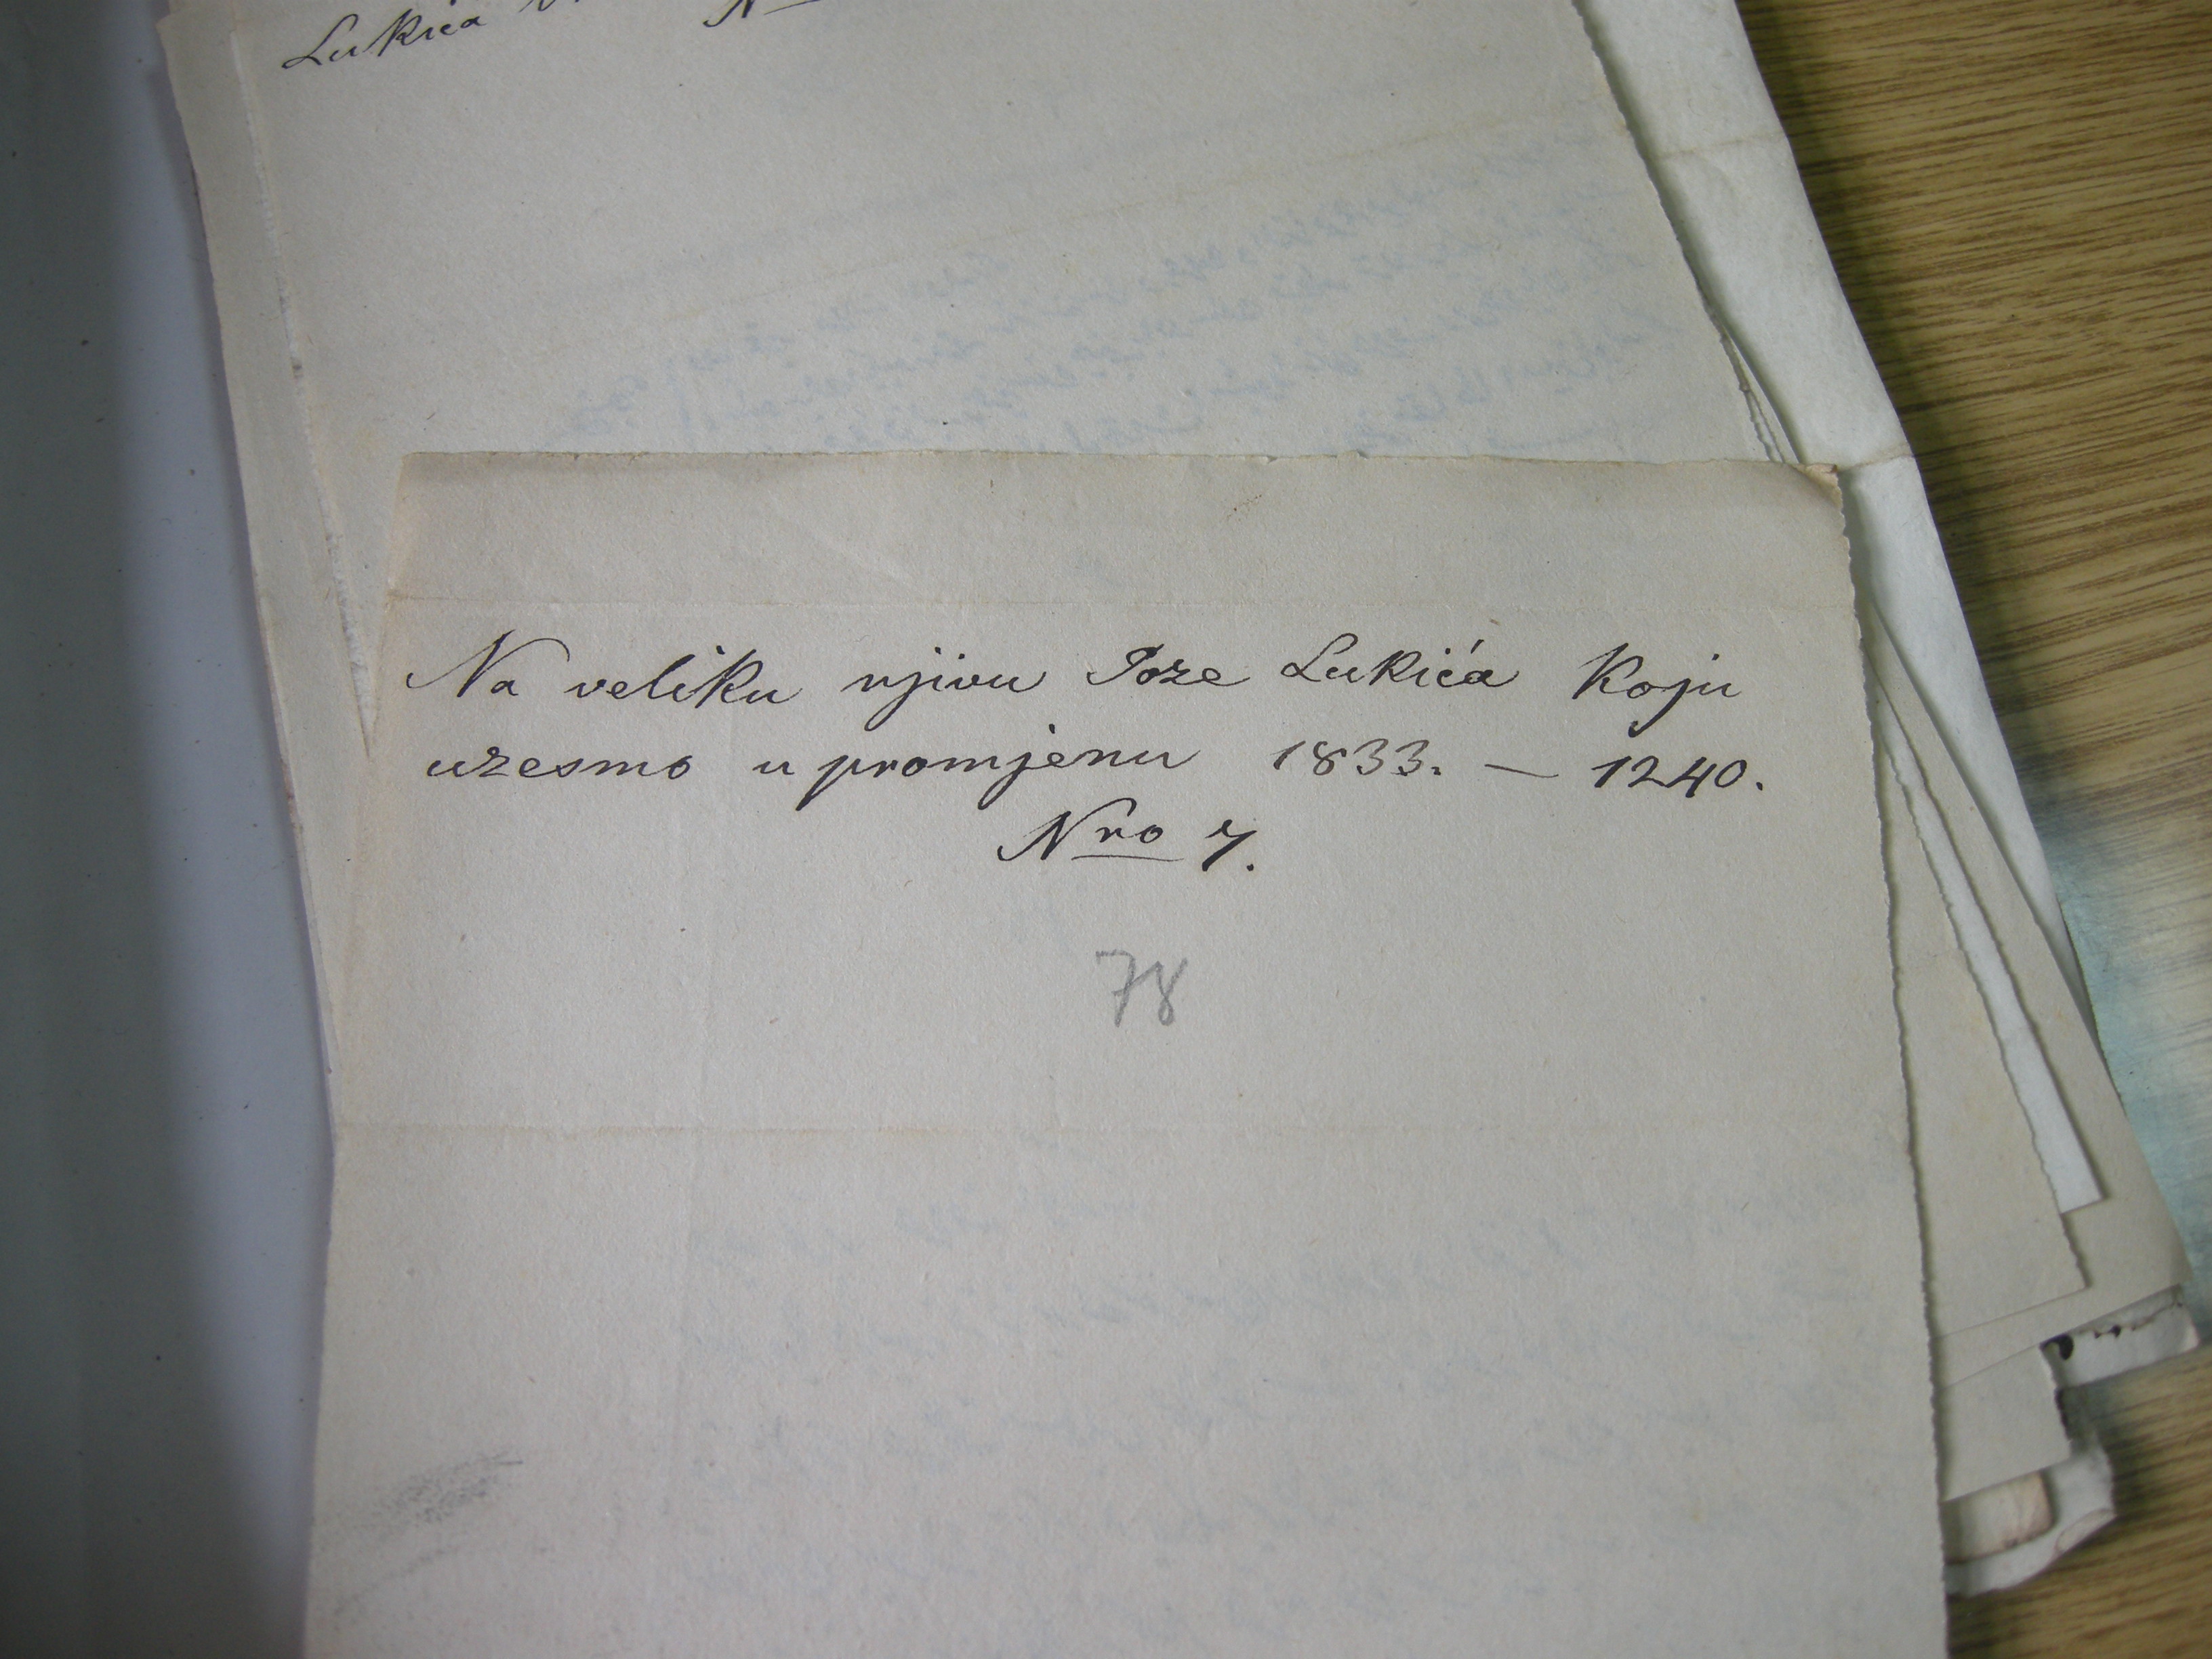 Lukića
Na veliku njivu Joze Lukića Koju
uzesmo u promjenu 1833. — 1240.
Nro 7.
78